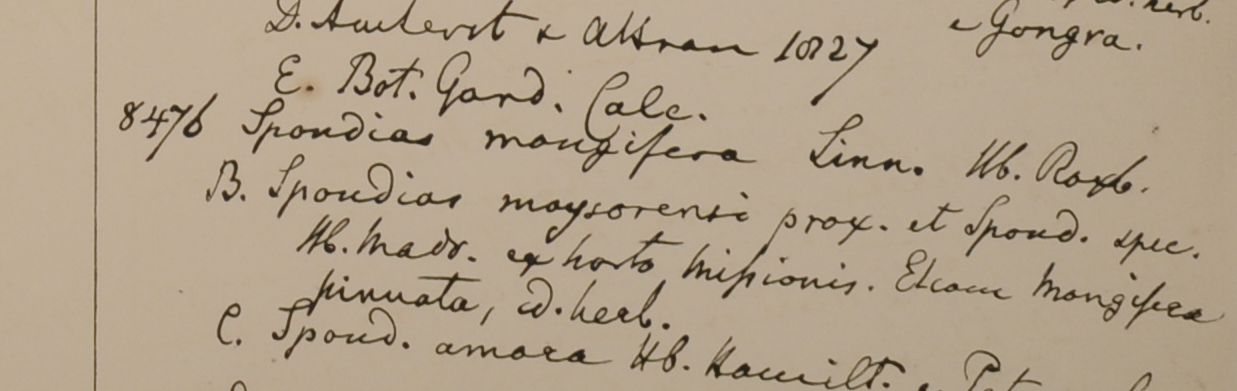 herb.
D. Amherst & Attran 1827 e Gongra.
E. Bot. Gard. Calc.
8476 Spondias mangifera Linn. Hb. Roxb.
B. Spondias maysorensi prox. et Spond. spec.
Hb. Madr. ex horto Missionis. Etiam Mangifera
pinnata, ed. herb.
C. Spond. amara Hb. Hamilt. e